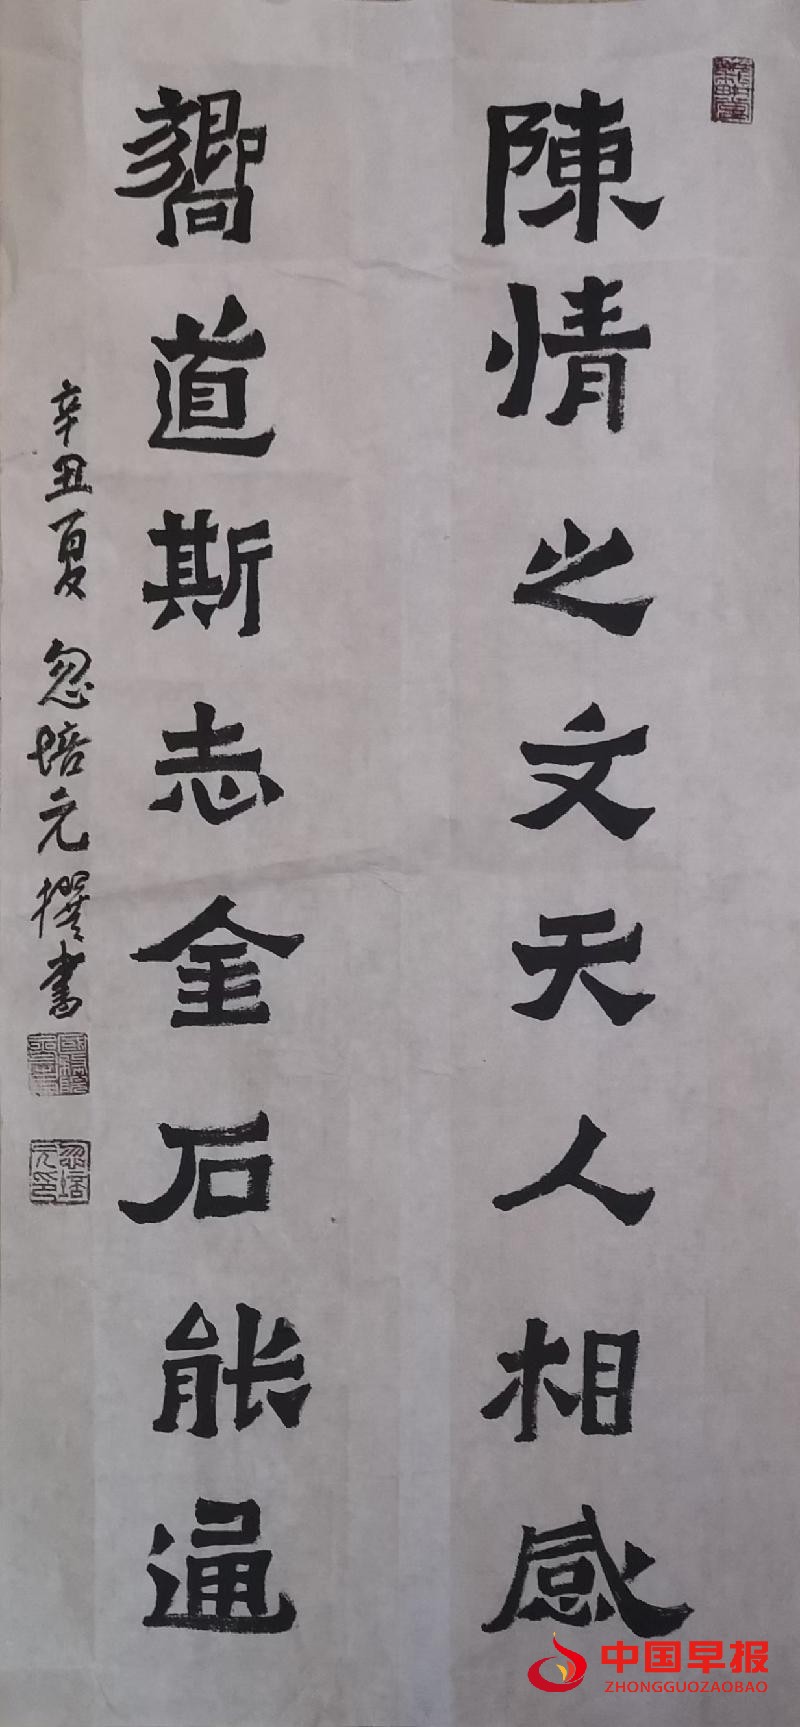 陳情之文天人相感
嚮道斯志金石能通
辛丑夏 忽培元撰書
忽培元印
中国早报
ZHONGGUOZAOBAO